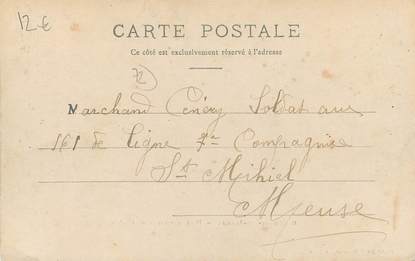 12 €
CARTE POSTALE
Ce côté est exclusivement réservé à l'adresse
72
Marchand Cénézy Soldat au
161 de ligne 7e Compagnie
St Mihiel
Meuse